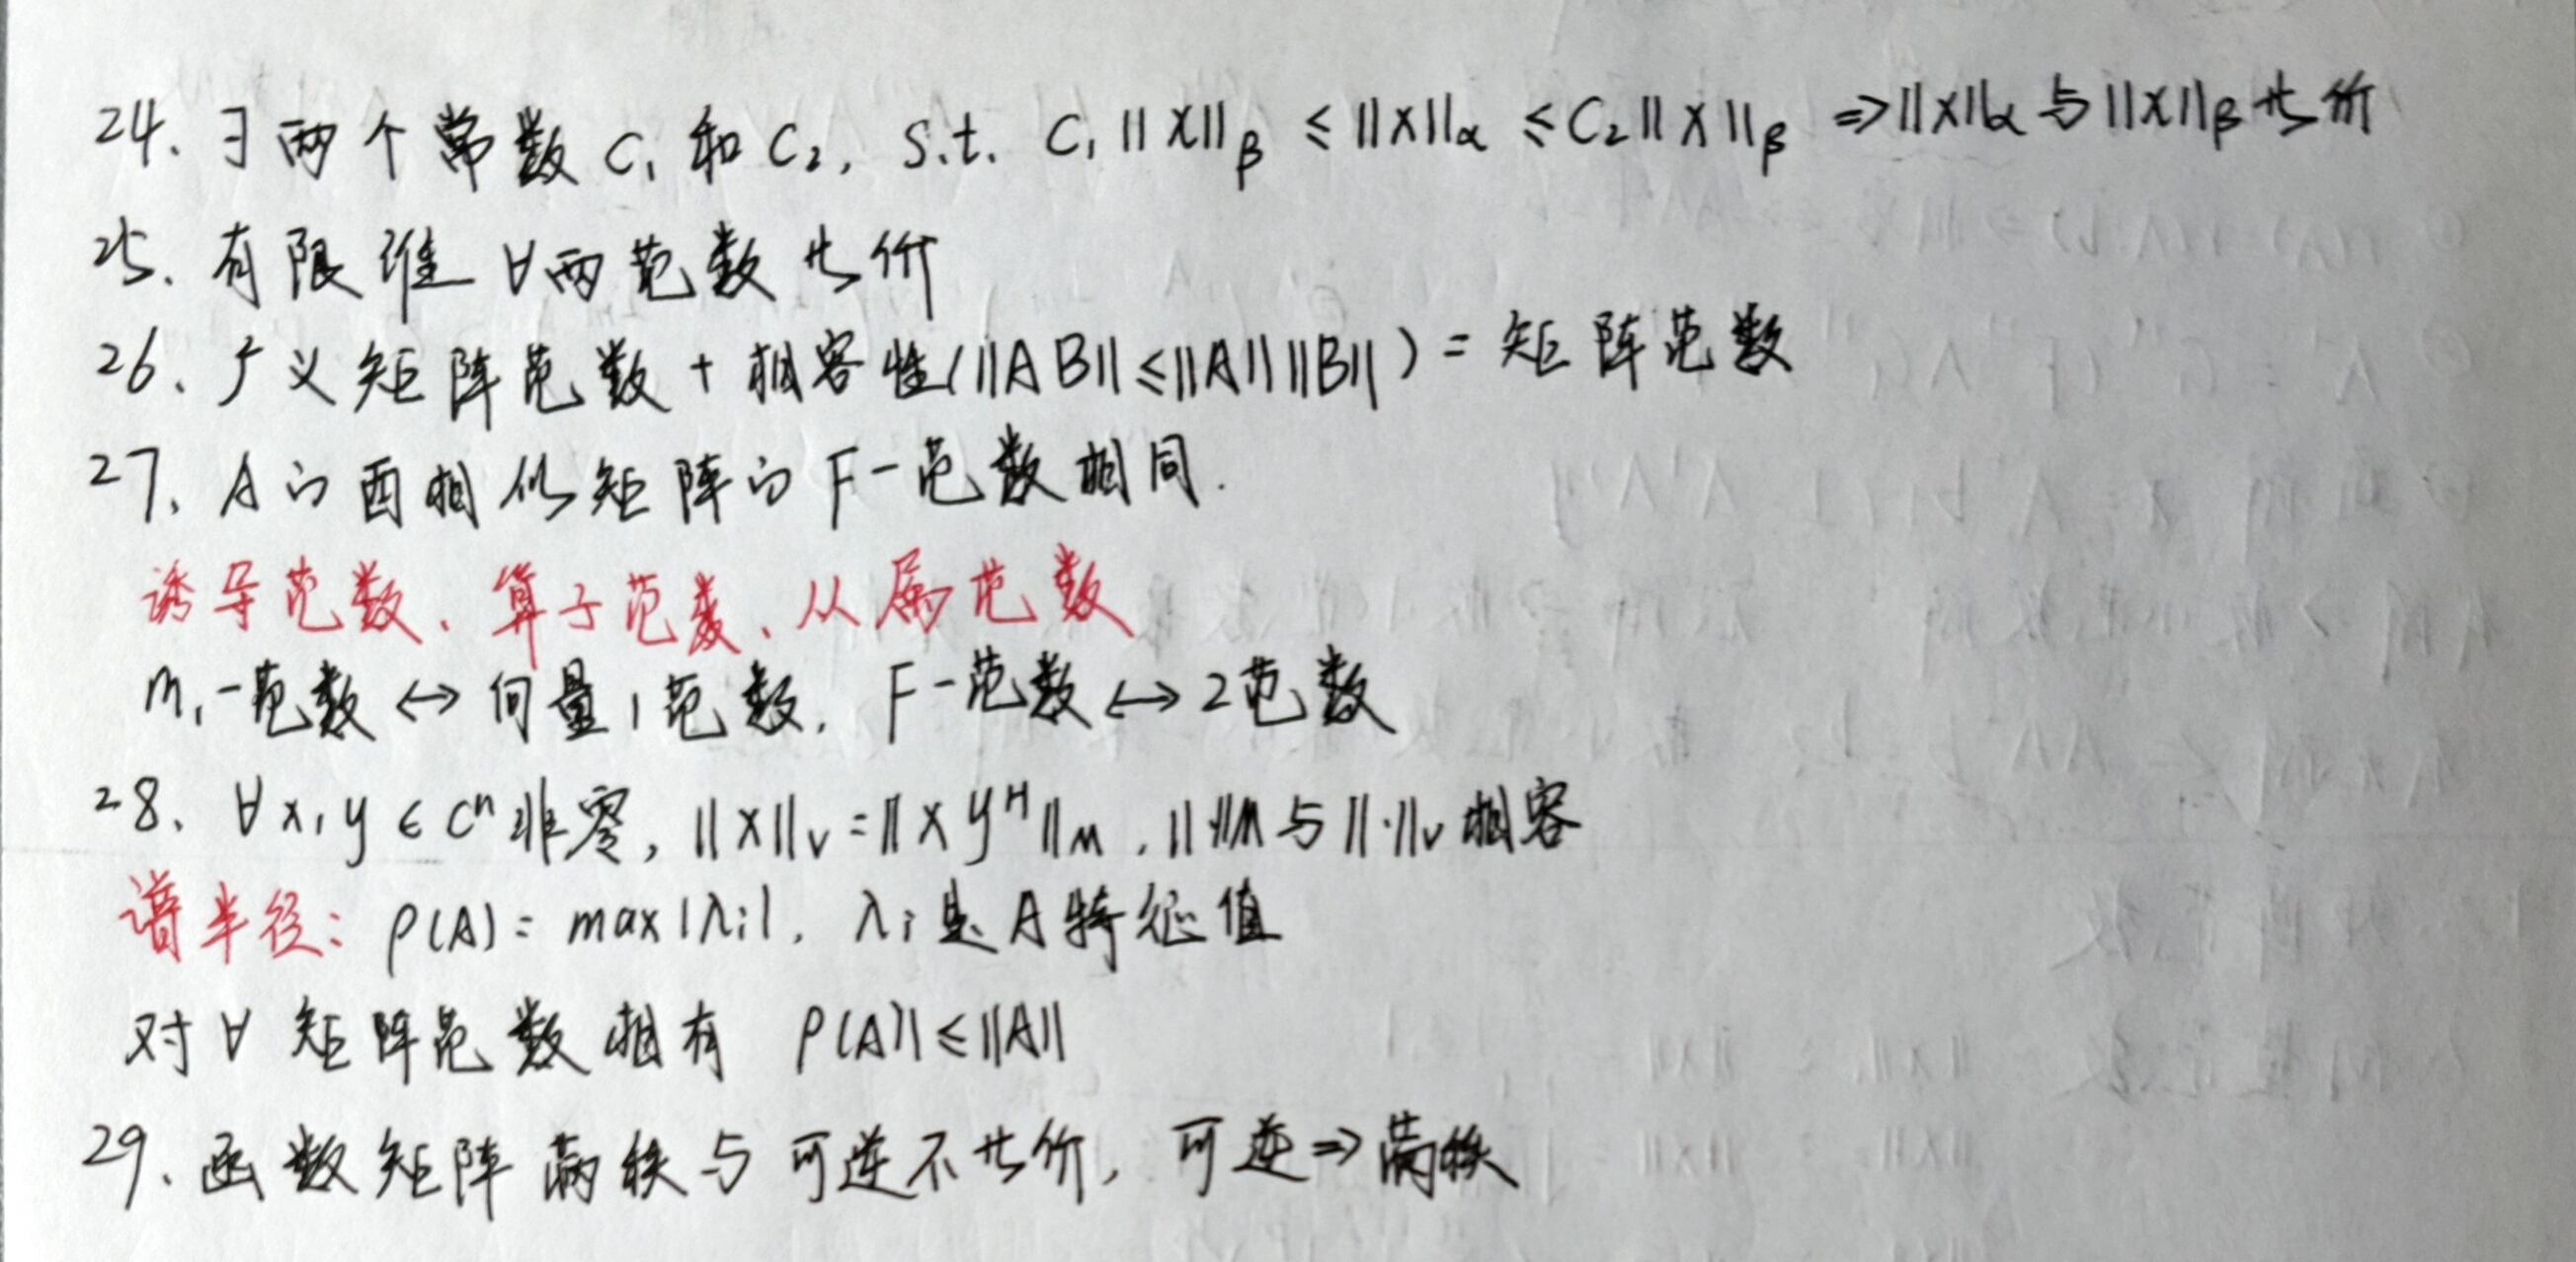 24. ∃两个常数C₁和C₂, s.t. C₁||X||β ≤ ||X||α ≤ C₂||X||β ⇒ ||X||α与||X||β共价
25. 有限维∀两范数共价
26. 广义矩阵范数+相容性(||AB||≤||A||||B||)=矩阵范数
27. A的酉相似矩阵的F-范数相同.
诱导范数、算子范数、从属范数
m₁-范数↔向量1范数, F-范数↔2范数
28. ∀x,y∈Cⁿ非零, ||X||v=||Xyᴴ||M, ||·||M与||·||v相容
谱半径: ρ(A)=max|λi|, λi是A特征值
对∀矩阵范数相有 ρ(A)≤||A||
29. 函数矩阵满秩与可逆不共价, 可逆⇒满秩